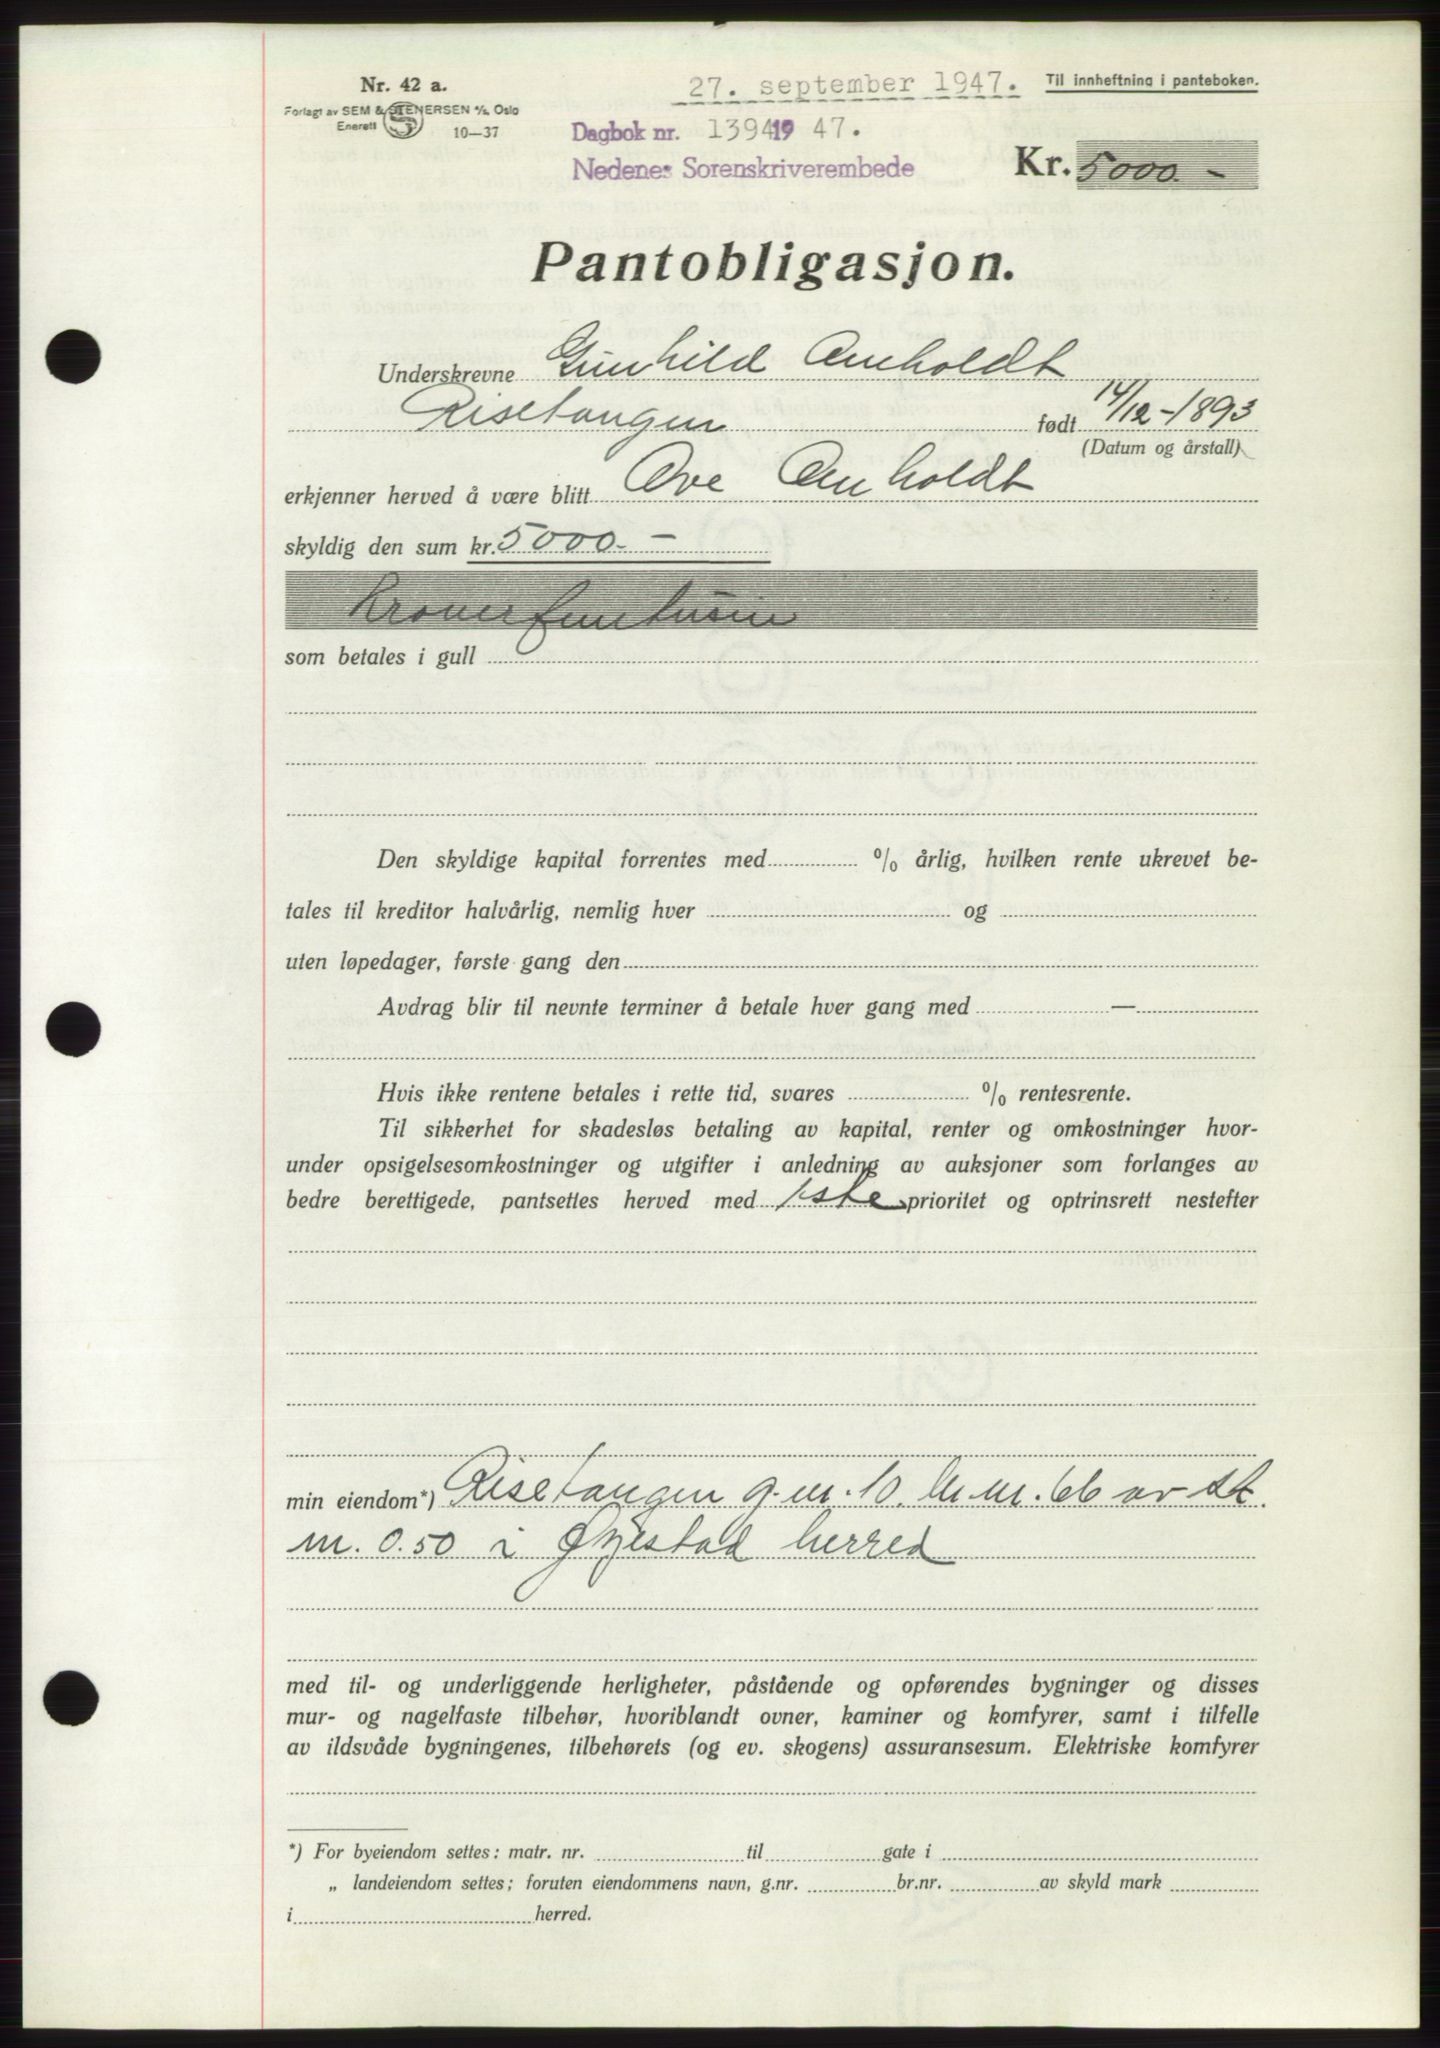 Nr. 42 a.
Forlagt av SEM & STENERSEN A/S, Oslo
Enerett
S
10—37
27. september 1947.
Til innheftning i panteboken.
Dagbok nr. 1394 19 47.
Nedenes Sorenskriverembede
Kr. 5000.-
Pantobligasjon.
Underskrevne Gunhild Arnholdt
Risetangen født 14/12-1893
(Datum og årstall)
erkjenner herved å være blitt Ove Arnholdt
skyldig den sum kr. 5000.-
Kroner femtusin
som betales i gull
Den skyldige kapital forrentes med % årlig, hvilken rente ukrevet be-
tales til kreditor halvårlig, nemlig hver og
uten løpedager, første gang den
Avdrag blir til nevnte terminer å betale hver gang med —
Hvis ikke rentene betales i rette tid, svares % rentesrente.
Til sikkerhet for skadesløs betaling av kapital, renter og omkostninger hvor-
under opsigelsesomkostninger og utgifter i anledning av auksjoner som forlanges av
bedre berettigede, pantsettes herved med 1ste prioritet og optrinsrett nestefter
min eiendom*) Risetangen g.nr. 10. br.nr. 66 av sk.
m. 0.50 i Øyestad herred
med til- og underliggende herligheter, påstående og opførendes bygninger og disses
mur- og nagelfaste tilbehør, hvoriblandt ovner, kaminer og komfyrer, samt i tilfelle
av ildsvåde bygningenes, tilbehørets (og ev. skogens) assuransesum. Elektriske komfyrer
*) For byeiendom settes: matr. nr. til gate i
„ landeiendom settes; foruten eiendommens navn, g.nr. br.nr. av skyld mark
i herred.